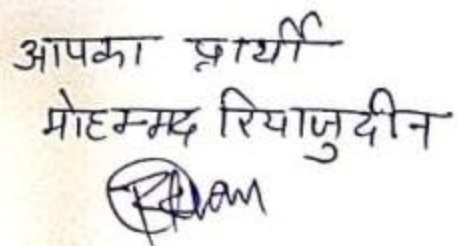 आपका प्रार्थी
मोहम्मद रियाजुदीन